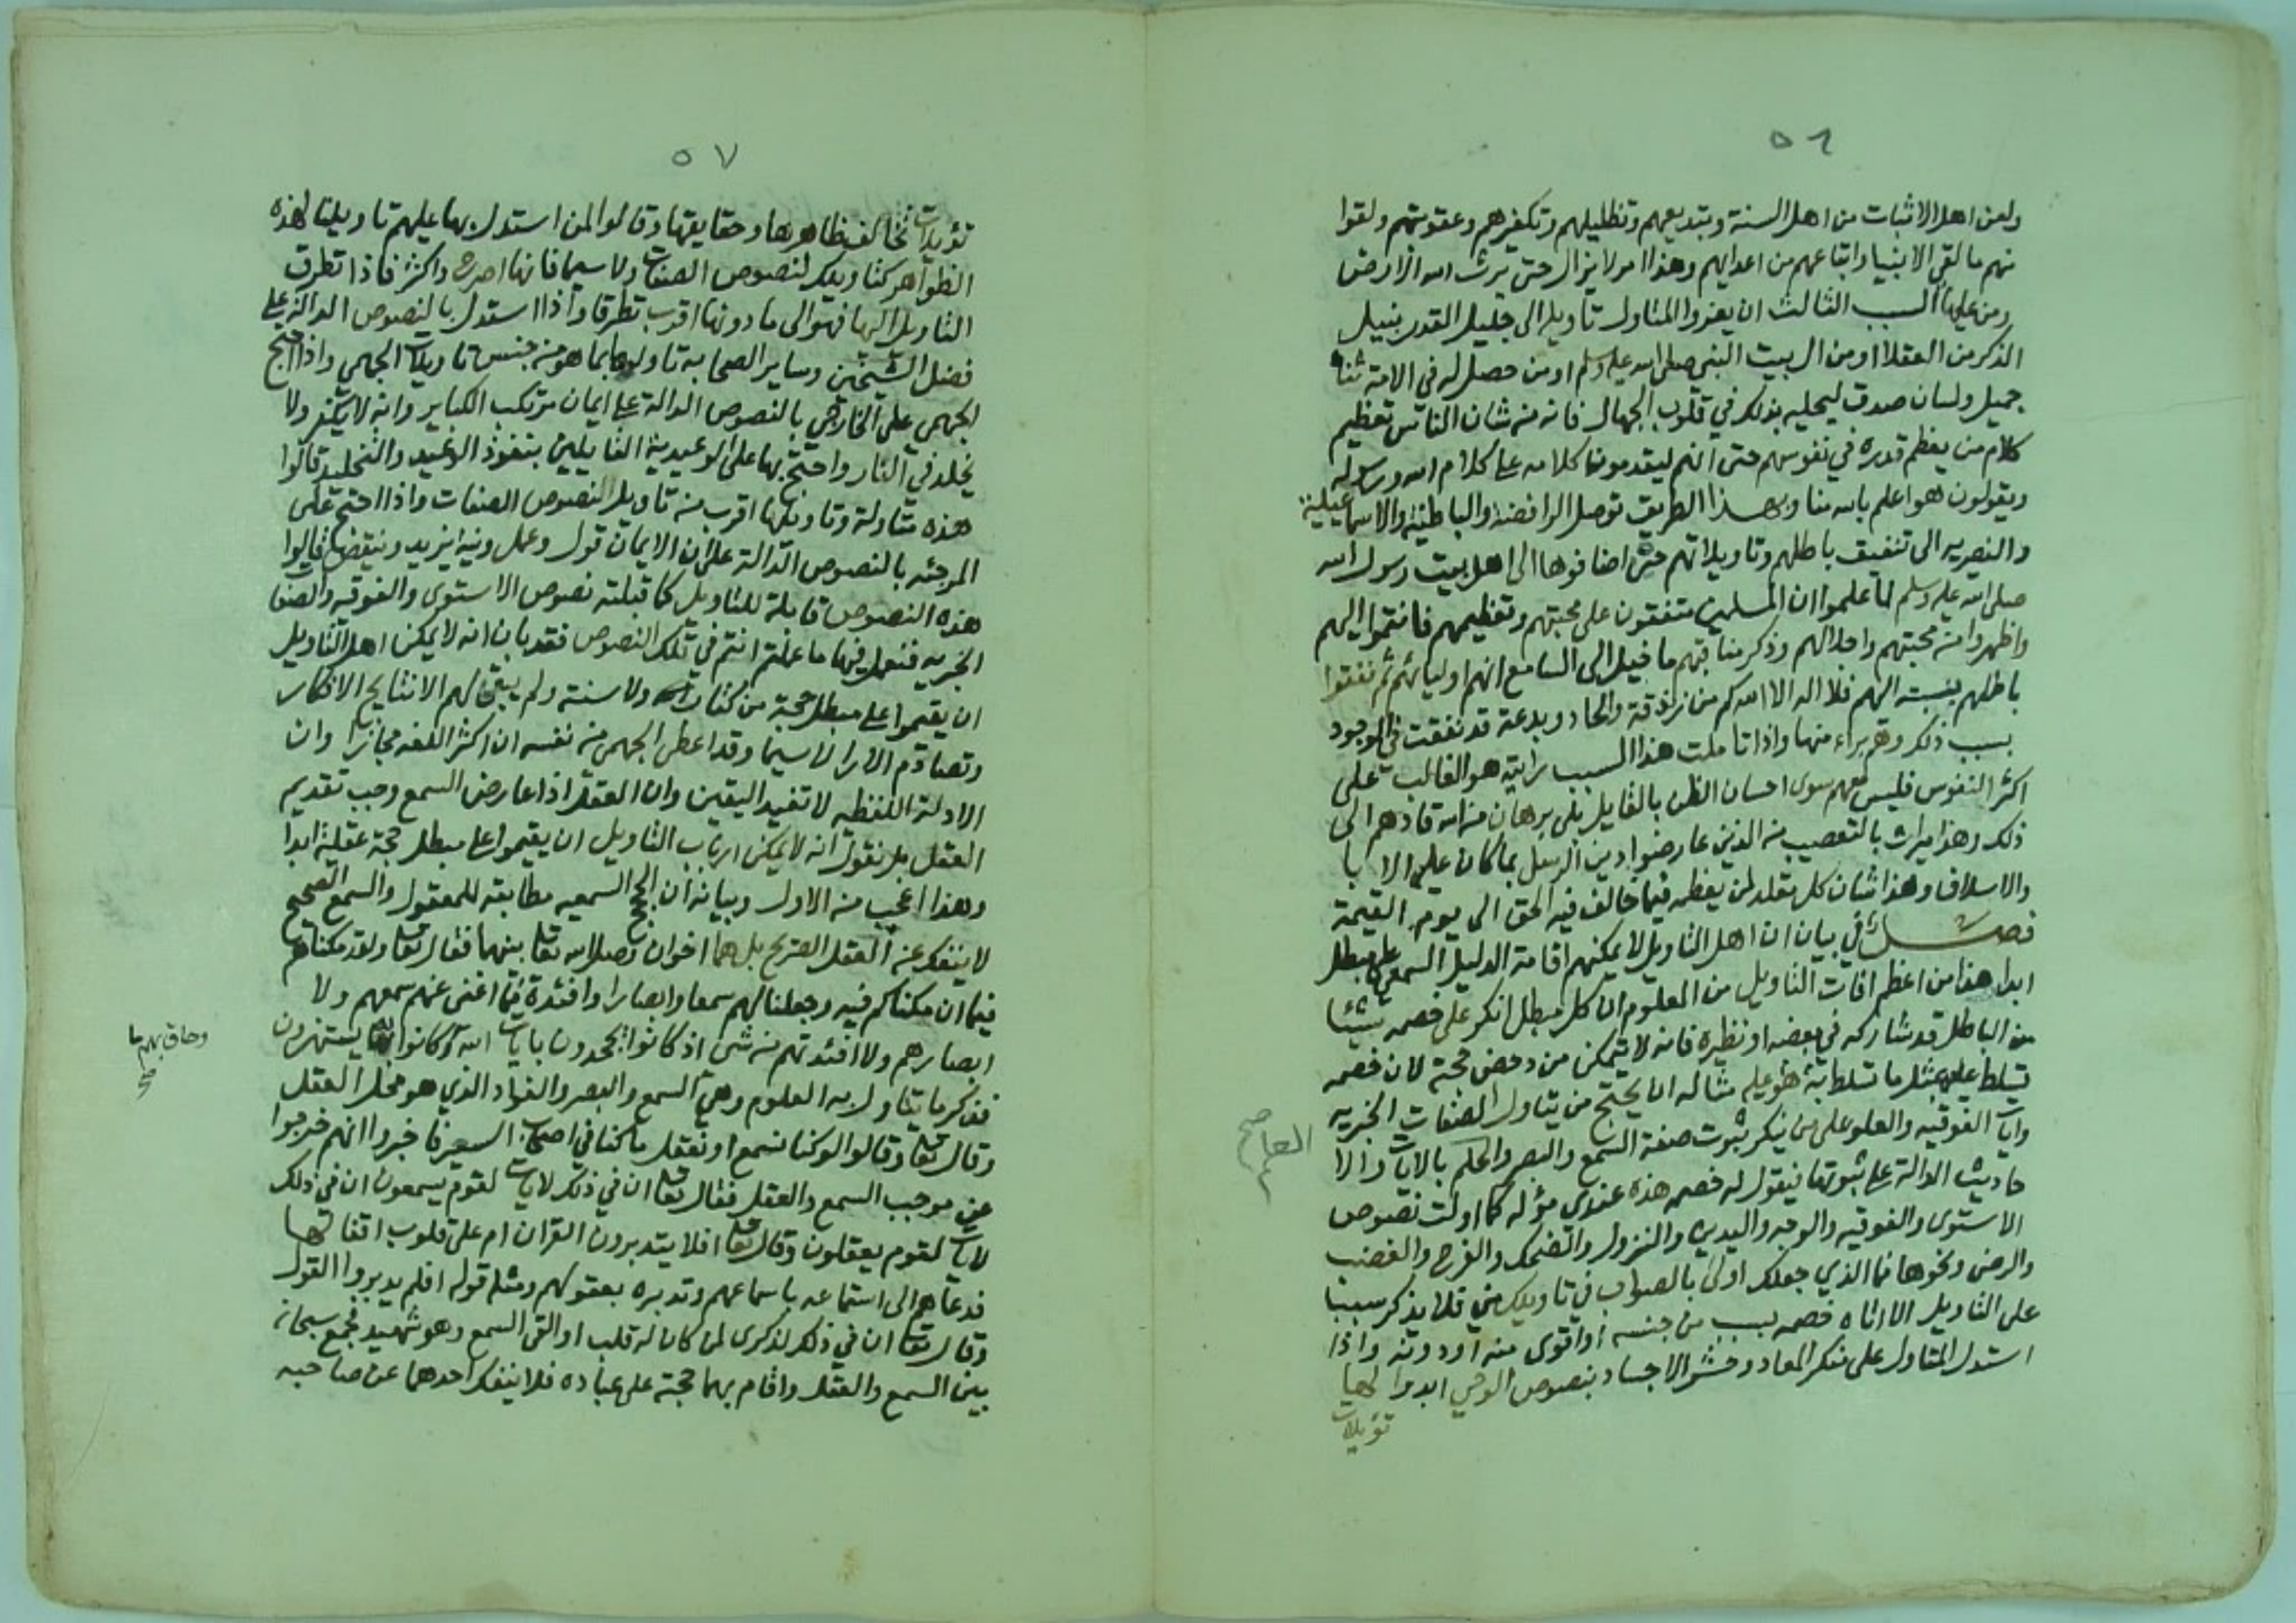 ٥٦
ولعن اهل الاثبات من اهل السنة وتبديعهم وتظليلهم وتكفيرهم وعقوبتهم ولقوا
منهم ما لقي الانبيا واتباعهم من اعدايهم وهذا امر لا يزال حتى يرث الله الارض
ومن عليها السبب الثالث ان يعزوا المتاول تاويله الى جليل القدر نبيل
الذكر من العقلا او من ال بيت النبي صلى الله عليه وسلم او من حصل له في الامة ثناء
جميل ولسان صدق ليحليه بذلك في قلوب الجهال فانه من شان الناس تعظيم
كلام من يعظم قدره في نفوسهم حتى انهم ليقدمون كلامه على كلام الله ورسوله
ويقولون هو اعلم بالله منا وبهذا الطريق توصل الرافضة والباطنية والاسماعيلية
والنصريه الى تنفيق باطلهم وتاويلاتهم حتى اضافوها الى اهل بيت رسول الله
صلى الله عليه وسلم لما علموا ان المسلمين متفقون على محبتهم وتعظيمهم فانتموا اليهم
واظهروا من محبتهم واجلالهم وذكر مناقبهم ما خيل الى السامع انهم اوليائهم ثم نفقوا
باطلهم بنسبته اليهم فلا اله الا الله كم من زندقة والحاد وبدعة قد نفقت في الوجود
بسبب ذلك وهم براء منها واذا تاملت هذا السبب رايته هو الغالب على
اكثر النفوس فليس معهم سوى احسان الظن بالقايل بلى برهان من الله قادهم الى
ذلك وهذا ميراث بالتعصيب من الذين عارضوا دين الرسل بما كان عليه الا با
والاسلاف وهذا شان كل مقلد لمن يعظمه فيما خالف فيه الحق الى يوم القيمة
فصل في بيان ان اهل التاويل لا يمكنهم اقامة الدليل السمعي على مبطل
ابدا هذا من اعظم افات التاويل من المعلوم ان كل مبطل انكر على خصمه شيئا
من الباطل قد شاركه في بعضه او نظيره فانه لا يتمكن من دحض حجته لان خصمه
تسلط عليه بمثل ما تسلط به هو عليه مثاله ان يحتج من يتاول الصفات الخبريه
وايات الفوقيه والعلو على من ينكر ثبوت صفة السمع والبصر والحكم بالايات والا
العلم صح
حاديث الدالة على ثبوتها فيقول له خصمه هذه عندي مؤله كما اولت نصوص
الاستوى والفوقيه والوجه واليدين والنزول والضحك والفرح والغضب
والرضى ونحوها فما الذي جعلك اولى بالصواب في تاويلك مني فلا يذكر سببا
على التاويل الا اتاه خصمه بسبب من جنسه او اقوى منه او دونه واذا
استدل المتاول على منكر المعاد وحشر الاجساد بنصوص الوحي ابدوا لها
تؤيلات
٥٧
تؤيلات تخالف ظاهرها وحقايقها وقالوا لمن استدل بها عليهم تاويلنا لهذه
الظواهر كتاويلك لنصوص الصفات ولا سيما فانها اصرح واكثر فاذا تطرق
التاويل اليها فهو الى ما دونها اقرب تطرقا واذا استدل بالنصوص الداله على
فضل الشيخين وساير الصحابه تاولوها بما هو من جنس تاويلات الجهمي واذا احتج
الجهمي على الخارجي بالنصوص الدالة على ايمان مرتكب الكباير وانه لا يكفر ولا
يخلد في النار واحتج بها على الوعيدية القايلين بنفوذ الوعيد والتخليد قالوا
هذه متاولة وتاويلها اقرب من تاويل النصوص الصفات واذا احتج على
المرجئه بالنصوص الدالة على ان الايمان قول وعمل ونيه يزيد وينقص قالوا
هذه النصوص قابلة للتاويل كما قبلته نصوص الاستوى والفوقيه والصفات
الخبريه فنعمل فيها ما عملتم انتم في تلك النصوص فقد بان انه لا يمكن اهل التاويل
ان يقيموا على مبطل حجة من كتاب ولا سنة ولم يبقى لهم الا نتايج الافكار
وتصادم الارا لا سيما وقد اعطى الجهمي من نفسه ان اكثر اللغه مجازا وان
الادلة اللفظيه لا تفيد اليقين وان العقل اذا عارض السمع وجب تقديم
العقل بل نقول انه لا يمكن ارباب التاويل ان يقيموا على مبطل حجة عقلية ابدا
وهذا اعجب من الاول وبيانه ان الحجج السمعيه مطابقه للمعقول والسمع الصحيح
لا ينفك عن العقل الصريح بل هما اخوان وصل الله تعالى بينهما فقال تعالى ولقد مكناهم
فيما ان مكناكم فيه وجعلنا لهم سمعا وابصارا وافئدة فما اغنى عنهم سمعهم ولا
ابصارهم ولا افئدتهم من شئ اذ كانوا يجحدون بايات الله وكانوا به يستهزون
وحاق بهم ما صح
فذكر ما يتناول به العلوم وهي السمع والبصر والفواد الذي هو محل العقل
وقال تعالى وقالوا لو كنا نسمع او نعقل ما كنا في اصحاب السعير فاخبروا انهم خرجوا
عن موجب السمع والعقل فقال تعالى ان في ذلك لايات لقوم يسمعون ان في ذلك
لايات لقوم يعقلون وقال تعالى افلا يتدبرون القران ام على قلوب اقفالها
فدعاهم الى استماعه باسماعهم وتدبره بعقولهم ومثله قوله افلم يدبروا القول
وقال تعالى ان في ذلك لذكرى لمن كان له قلب او القى السمع وهو شهيد فجمع سبحانه
بين السمع والعقل واقام بهما حجة على عباده فلا ينفك احدهما عن صاحبه